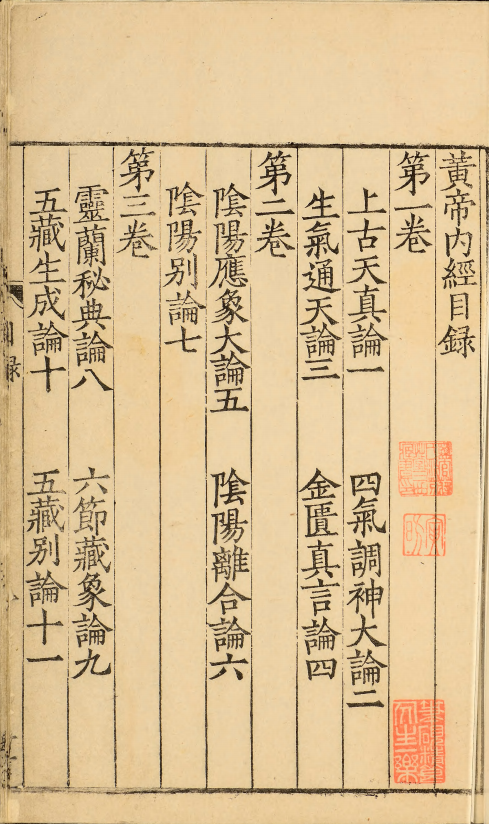 黃帝内經目録
第一卷
上古天真論一 四氣調神大論二
生氣通天論三 金匱真言論四
第二卷
陰陽應象大論五 陰陽離合論六
陰陽别論七
第三卷
靈蘭秘典論八 六節藏象論九
五藏生成論十 五藏别論十一